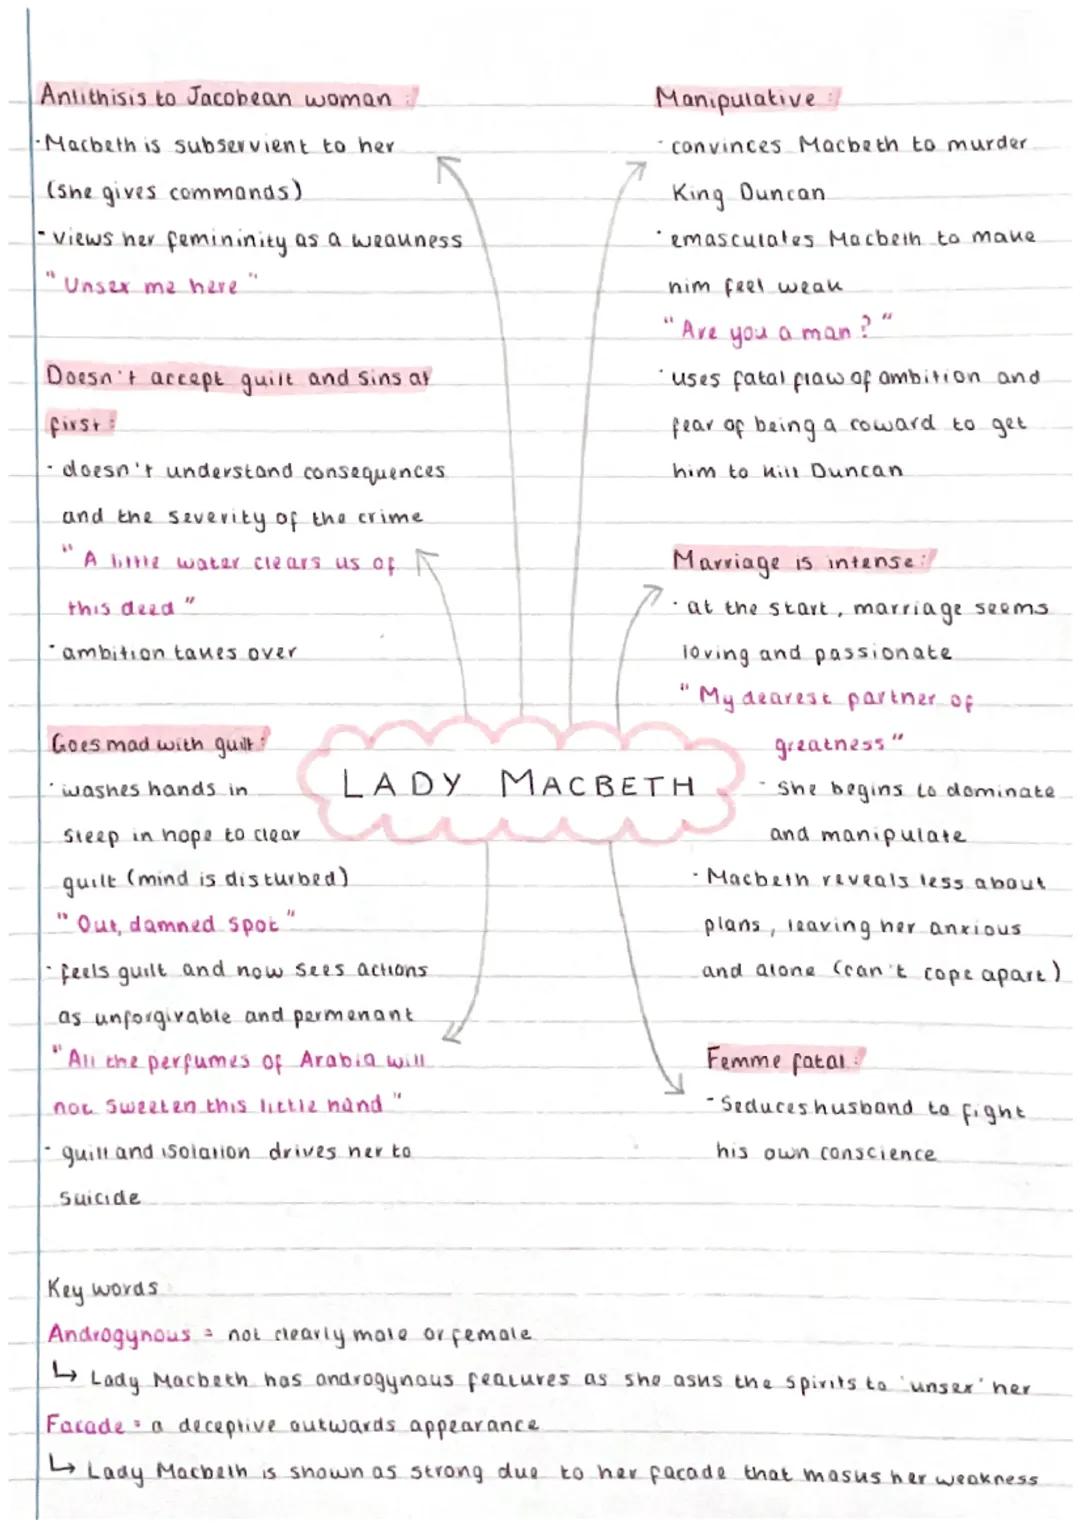 Antithisis to Jacobean woman :
· Macbeth is subservient to her
(she gives commands)
- views her femininity as a weakness
"Unsex me here"
Doesn't accept guilt and sins at
first :
· doesn't understand consequences
and the severity of the crime
"A little water clears us of
this deed"
· ambition takes over
Goes mad with guilt :
· washes hands in
sleep in hope to clear
guilt (mind is disturbed)
"Out, damned spot"
· feels guilt and now sees actions
as unforgivable and permenant
"All the perfumes of Arabia will
not sweeten this little hand"
· guilt and isolation drives her to
suicide
LADY MACBETH
Manipulative :
· convinces Macbeth to murder
King Duncan
· emasculates Macbeth to make
him feel weak
"Are you a man?"
· uses fatal flaw of ambition and
fear of being a coward to get
him to kill Duncan
Marriage is intense :
· at the start, marriage seems
loving and passionate
"My dearest partner of
greatness"
- She begins to dominate
and manipulate
· Macbeth reveals less about
plans, leaving her anxious
and alone (can't cope apart)
Femme fatal :
- Seduces husband to fight
his own conscience
Key words
Androgynous = not clearly male or female
↳ Lady Macbeth has androgynous features as she asks the spirits to 'unsex' her
Facade = a deceptive outwards appearance
↳ Lady Macbeth is shown as strong due to her facade that masks her weakness